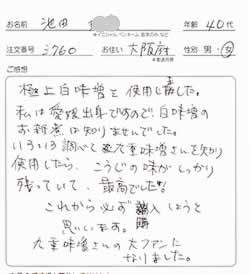 お名前 池田
※イニシャル、ペンネーム、苗字のみ など
年齢 40代
注文番号 3760 お住い 大阪府 性別 男・女
※都道府県
ご感想
極上白味噌を使用しました。
私は愛媛出身ですので、白味噌の
お雑煮は知りませんでした。
いろいろ調べて九重味噌さんを知り
使用したら、こうじの味がしっかり
残っていて、最高でした!
これから必ず購入しようと
思います。
九重味噌さんの大ファンに
なりました。